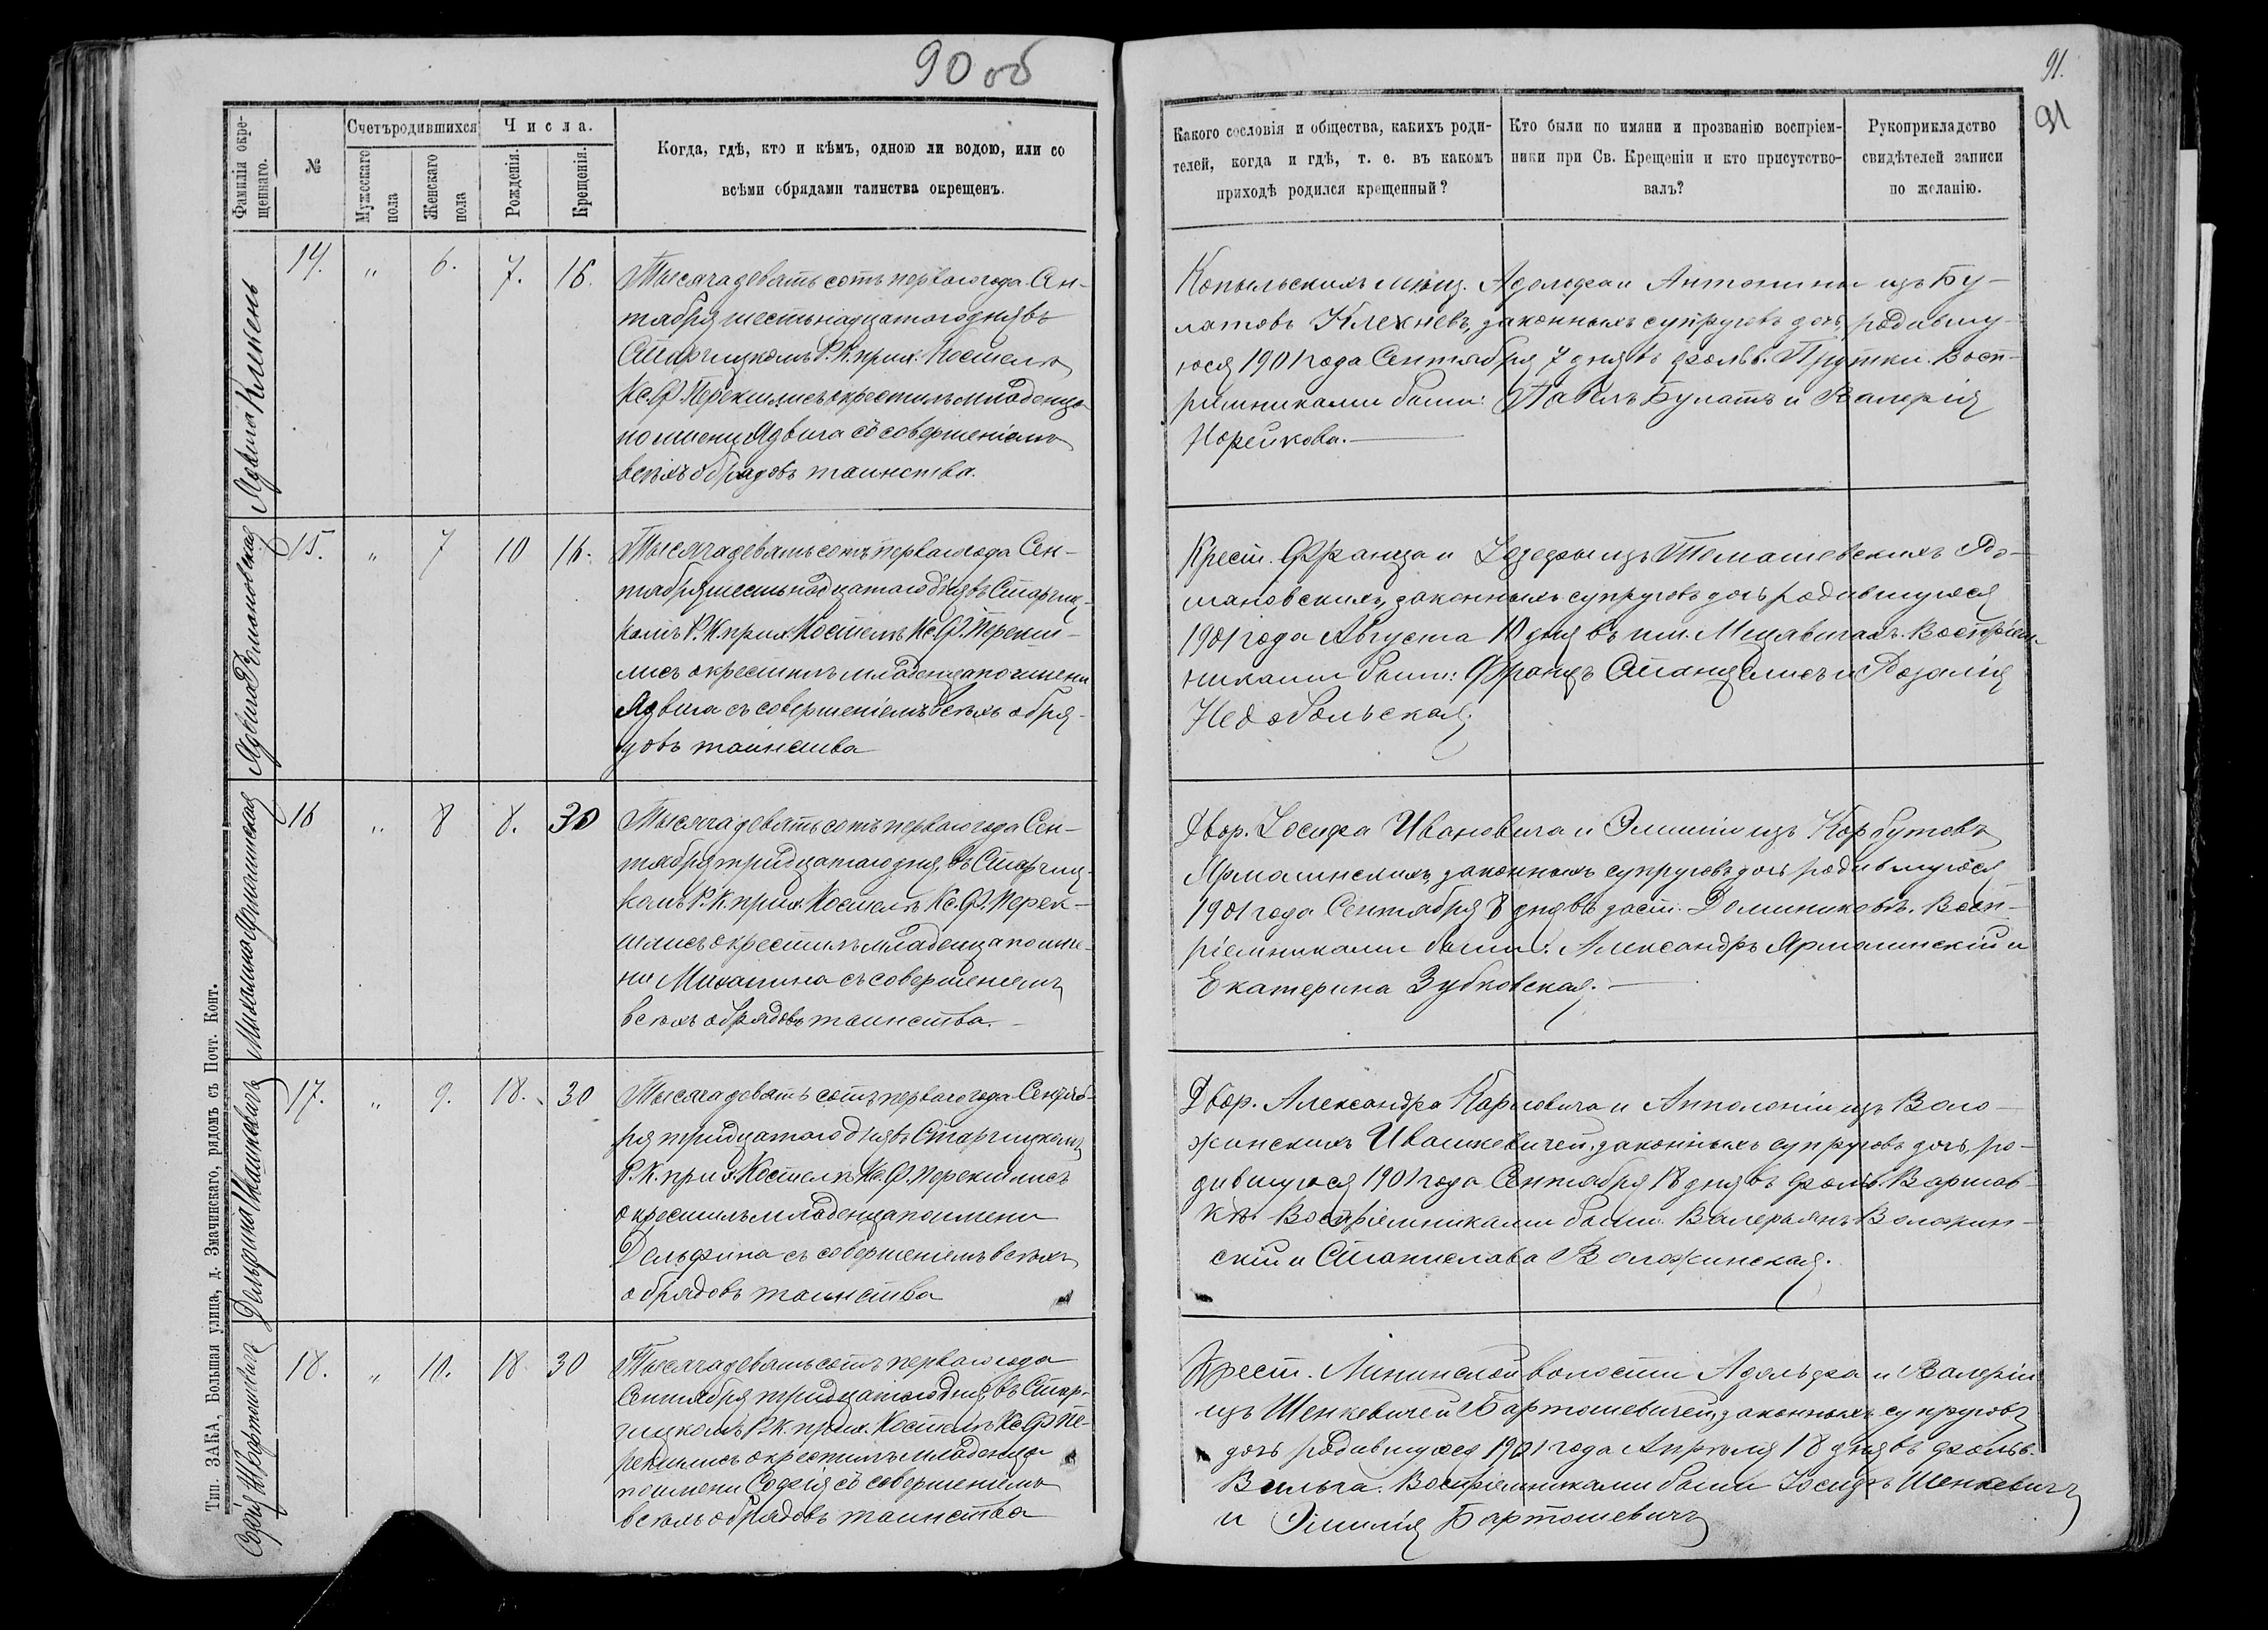 90 об
Фамилія окре-
щеннаго.
№
Счетъ родившихся
Мужескаго
пола
Женскаго
пола
Числа.
Рожденія.
Крещенія.
Когда, гдѣ, кто и кѣмъ, одною ли водою, или со
всѣми обрядами таинства окрещенъ.
Ядвига Клихень
14. " 6. 7. 16.
Тысяча девятьсотъ перваго года Сен-
тября шестьнадцатого дня въ
Старчицкомъ Р. К. прих. Костелѣ
Кс. Ф. Перекшлисъ окрестилъ младенца
по имени Ядвига съ совершеніемъ
всѣхъ обрядовъ таинства.
Ядвига Романовская
15. " 7 10 16.
Тысяча девятьсотъ перваго года Сен-
тября шестьнадцатаго дня въ Старчиц-
комъ Р. К. прих. Костелѣ Кс. Ф. Перекш-
лисъ окрестилъ младенца по имени
Ядвига съ совершеніемъ всѣхъ обря-
довъ таинства
Михалина Ярмолинская
16 " 8 8. 30
Тысяча девятьсотъ перваго года Сен-
тября тридцатаго дня, въ Старчиц-
комъ Р. К. прих. Костелѣ Кс. Ф. Перек-
шлисъ окрестилъ младенца по име-
ни Михалина съ совершеніемъ
всѣхъ обрядовъ таинства.
Дельфина Ивашкевичъ
17. " 9. 18. 30
Тысяча девятьсотъ перваго года Сентяб-
ря тридцатаго дня въ Старчицкомъ
Р. К. прих. Костелѣ Кс. Ф. Перекшлисъ
окрестилъ младенца по имени
Дельфина съ совершеніемъ всѣхъ
обрядовъ таинства
Софія Бартошевичъ
18. " 10. 18 30
Тысяча девятьсотъ перваго года
Сентября тридцатаго дня, въ Стар-
чицкомъ Р. К. прих. Костелѣ Кс. Ф. Пе-
рекшлисъ окрестилъ младенца
по имени Софія съ совершеніемъ
всѣхъ обрядовъ таинства
Тип. ЗАКА, Большая улица, д. Значинскаго, рядомъ съ Почт. Конт.
91.
91
Какого сословія и общества, какихъ роди-
телей, когда и гдѣ, т. е. въ какомъ
приходѣ родился крещенный?
Кто были по имяни и прозванію воспріем-
ники при Св. Крещеніи и кто присутство-
валъ?
Рукоприкладство
свидѣтелей записи
по желанію.
Копыльскихъ мѣщ. Адольфа и Антонины изъ Бу-
латовъ Клехневъ, законныхъ супруговъ дочь, родившу-
юся 1901 года Сентября 7 дня въ фольв. Прутки. Восп-
ріемниками были: Павелъ Булатъ и Валерія
Норейкова.
Крест. Франца и Іозефы изъ Томашевскихъ Ро-
мановскихъ, законныхъ супруговъ дочь родившуюся
1901 года Августа 10 дня въ им. Мцявичахъ. Воспріем-
никами были: Францъ и Розалія
Недобольская.
Двор. Іосифа Ивановича и Эмиліи изъ Корбутовъ
Ярмолинскихъ, законныхъ супруговъ дочь родившуюся
1901 года Сентября 8 дня въ заст. Доминиковъ. Восп-
ріемниками были: Александръ Ярмолинскій и
Екатерина Зубковская.
Двор. Александра Карловича и Апполоніи изъ Воло-
жинскихъ Ивашкевичей, законныхъ супруговъ дочь, ро-
дившуюся 1901 года Сентября 18 дня въ фольв. Варшав-
кѣ. Воспріемниками были: Валерьянъ Воложин-
скій и Станислава Воложинская.
Крест. волости Адольфа и Валеріи
изъ Шенкевичей Бартошевичей, законныхъ супруговъ
дочь родившуюся 1901 года Апрѣля 18 дня въ фольв.
Вильга. Воспріемниками были Іосифъ Шенкевичъ
и Эмилія Бартошевичъ